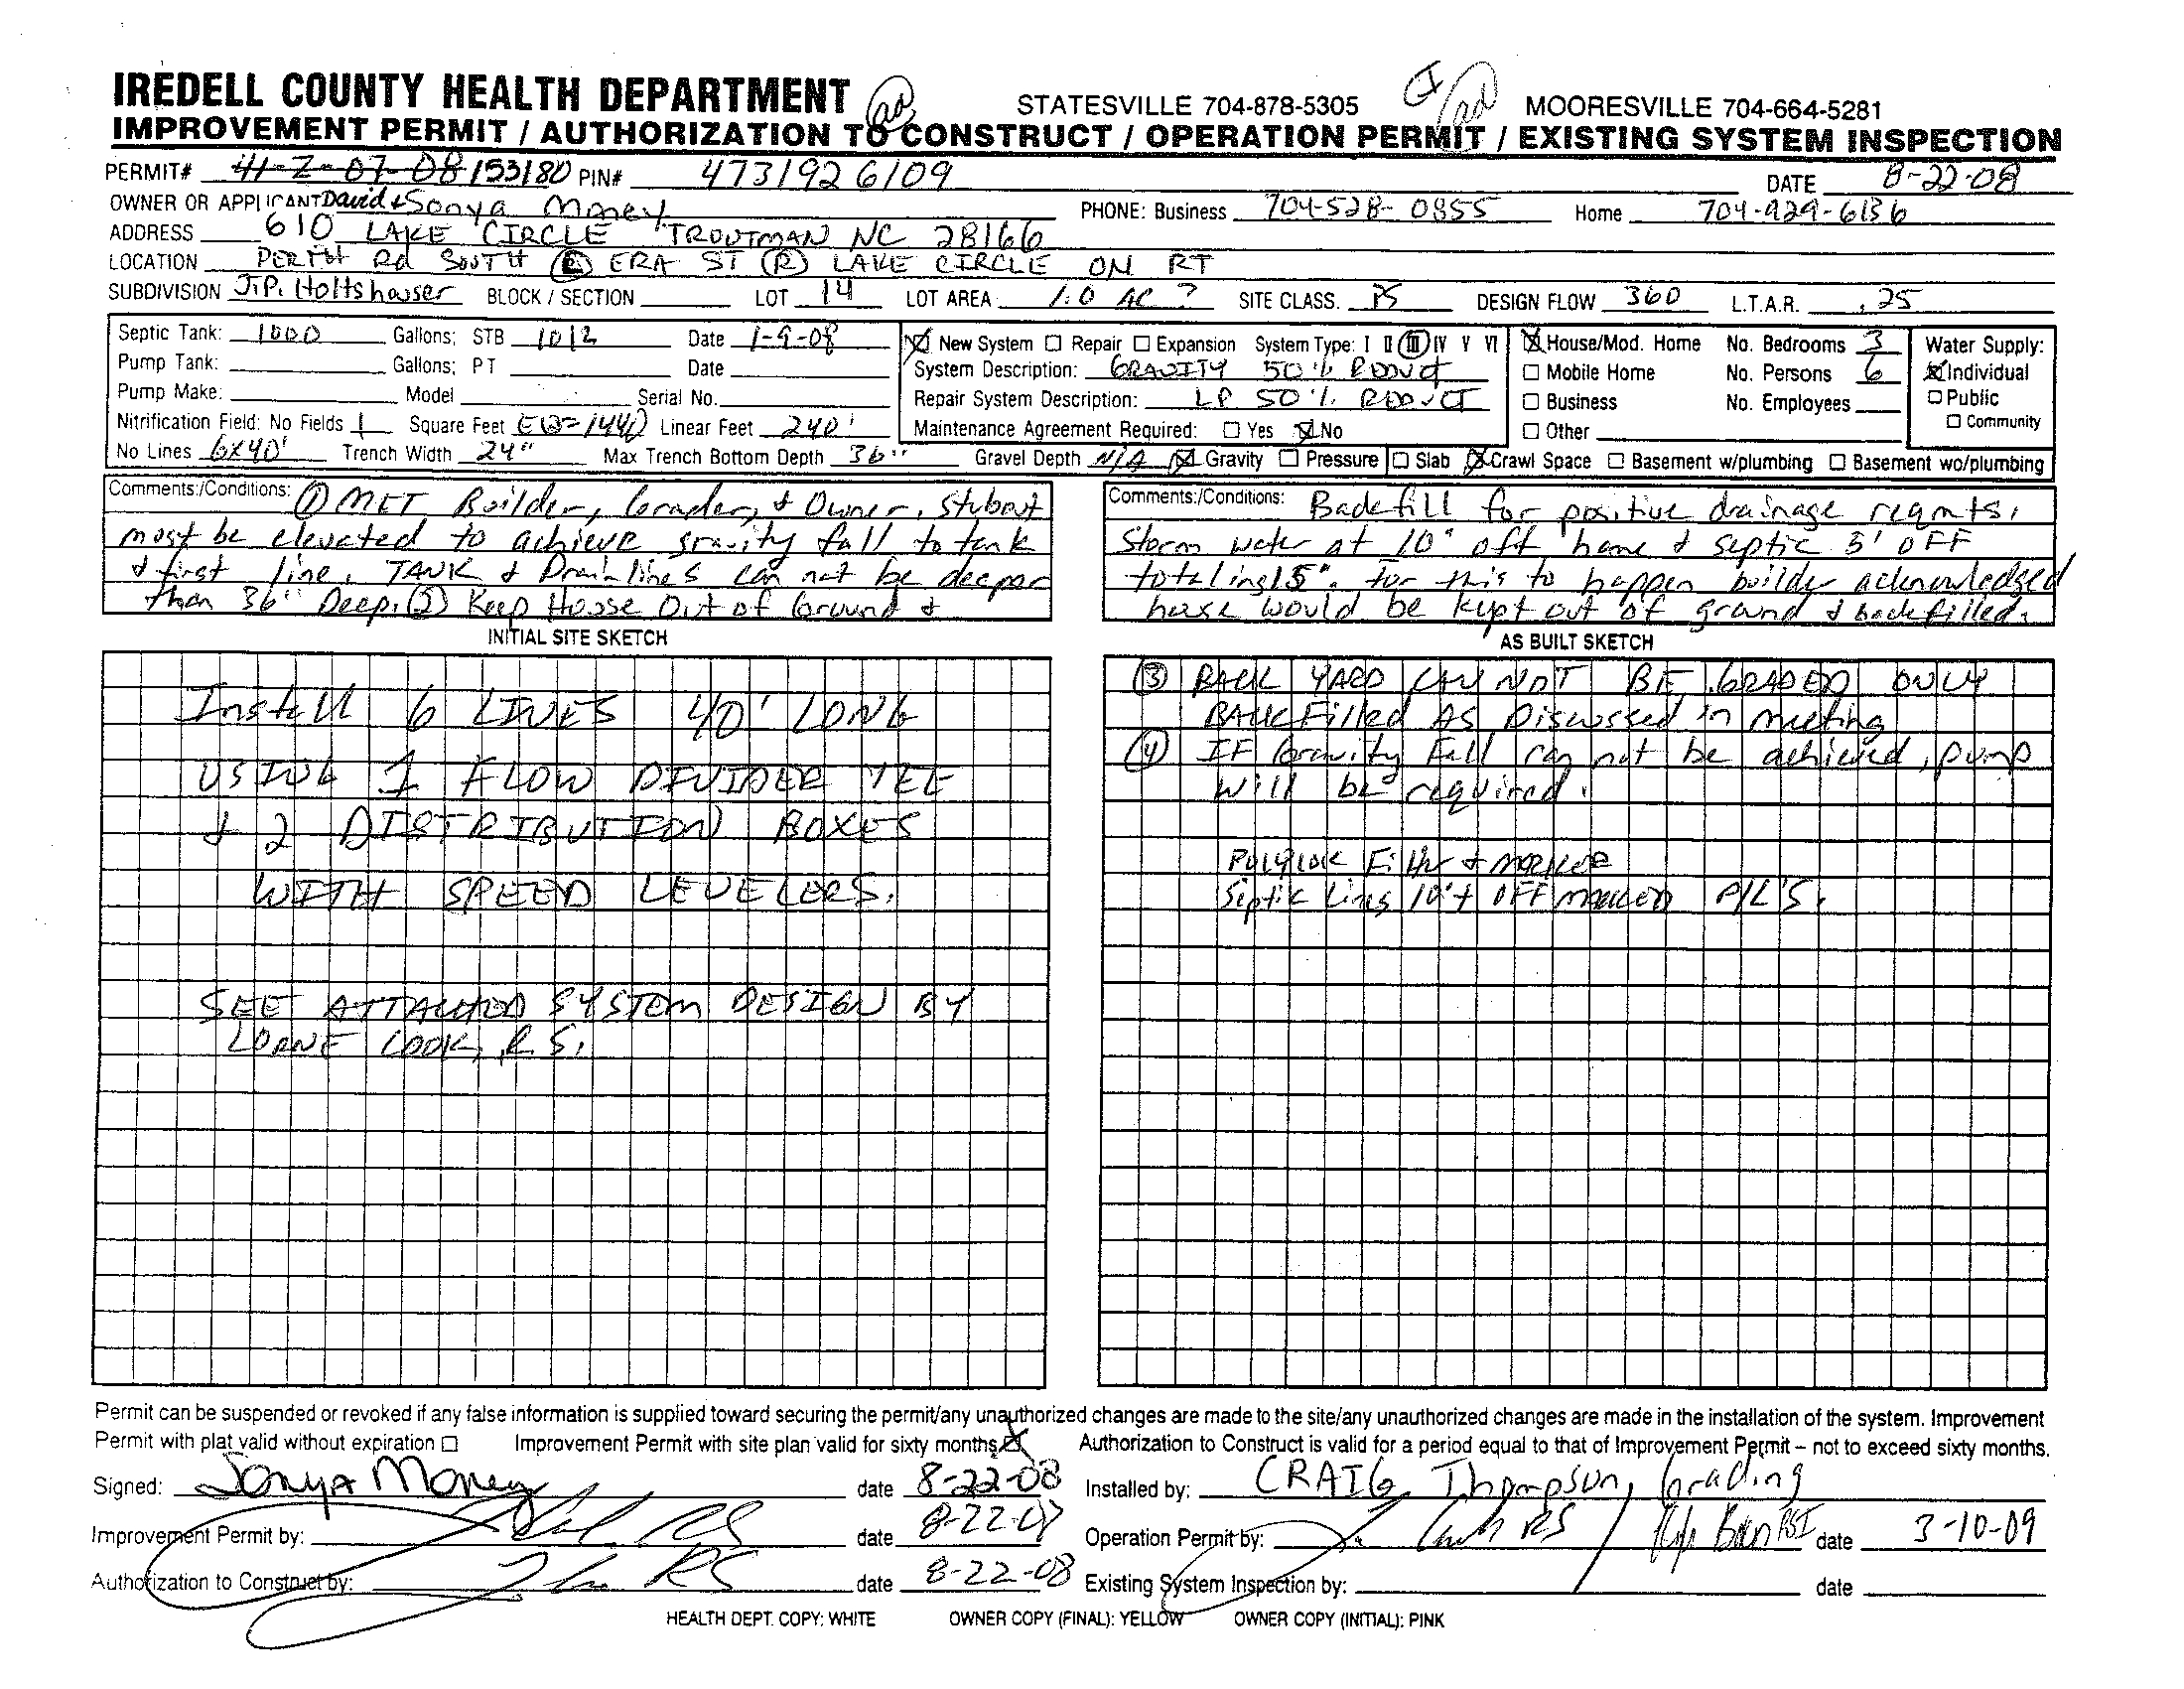 IREDELL COUNTY HEALTH DEPARTMENT STATESVILLE 704-878-5305 MOORESVILLE 704-664-5281
IMPROVEMENT PERMIT / AUTHORIZATION TO CONSTRUCT / OPERATION PERMIT / EXISTING SYSTEM INSPECTION
PERMIT# 41-Z-07-08 153180 PIN# 4731926109 DATE 8-22-08
OWNER OR APPLICANT David & Sonya Money PHONE: Business 704-528-0855 Home 704-929-6136
ADDRESS 610 LAKE CIRCLE TROUTMAN NC 28166
LOCATION PERTH Rd SOUTH ERA ST (R) LAKE CIRCLE ON RT
SUBDIVISION J.P. Holtshouser BLOCK / SECTION LOT 14 LOT AREA 1.0 AC ? SITE CLASS. PS DESIGN FLOW 360 L.T.A.R. .25
Septic Tank: 1000 Gallons; STB 1012 Date 1-9-08
Pump Tank: Gallons; PT Date
Pump Make: Model Serial No.
Nitrification Field: No Fields 1 Square Feet EQ=1440 Linear Feet 240'
No Lines 6x40' Trench Width 24" Max Trench Bottom Depth 36" Gravel Depth N/A Gravity Pressure Slab Crawl Space Basement w/plumbing Basement wo/plumbing
New System Repair Expansion System Type: I II III IV V VI
System Description: GRAVITY 50% REDUCT
Repair System Description: LP 50% REDUCT
Maintenance Agreement Required: Yes No
House/Mod. Home No. Bedrooms 3
Mobile Home No. Persons 6
Business No. Employees
Other
Water Supply:
Individual
Public
Community
Comments:/Conditions: ① MET Builder, Grader, & Owner, Stubout
must be elevated to achieve gravity fall to tank
& first line. TANK & Drainlines can not be deeper
than 36" Deep. (2) Keep House Out of Ground &
Comments:/Conditions: Backfill for positive drainage reqmts.
Storm water at 10" off home & septic 5' OFF
totaling 15". For this to happen builder acknowledged
house would be kept out of ground & backfilled.
INITIAL SITE SKETCH
Install 6 LINES 40' LONG
USING 1 FLOW DIVIDER TEE
& 2 DISTRIBUTION BOXES
WITH SPEED LEVELERS.
SEE ATTACHED SYSTEM DESIGN BY
LORNE COOK, R.S.
AS BUILT SKETCH
③ BACK YARD CAN NOT BE GRADED ONLY
BACKFilled AS Discussed in meeting
④ IF Gravity Fall can not be achieved, pump
will be required.
POLYLOK Filter & MARKER
Septic Lines 10'+ OFF MARKED P/L'S.
Permit can be suspended or revoked if any false information is supplied toward securing the permit/any unauthorized changes are made to the site/any unauthorized changes are made in the installation of the system. Improvement
Permit with plat valid without expiration Improvement Permit with site plan valid for sixty months Authorization to Construct is valid for a period equal to that of Improvement Permit – not to exceed sixty months.
Signed: Sonya Money date 8-22-08 Installed by: CRAIG Thompson, Grading
Improvement Permit by: RS date 8-22-07 Operation Permit by: RS date 3-10-09
Authorization to Construct by: RS date 8-22-08 Existing System Inspection by: date
HEALTH DEPT. COPY: WHITE OWNER COPY (FINAL): YELLOW OWNER COPY (INITIAL): PINK